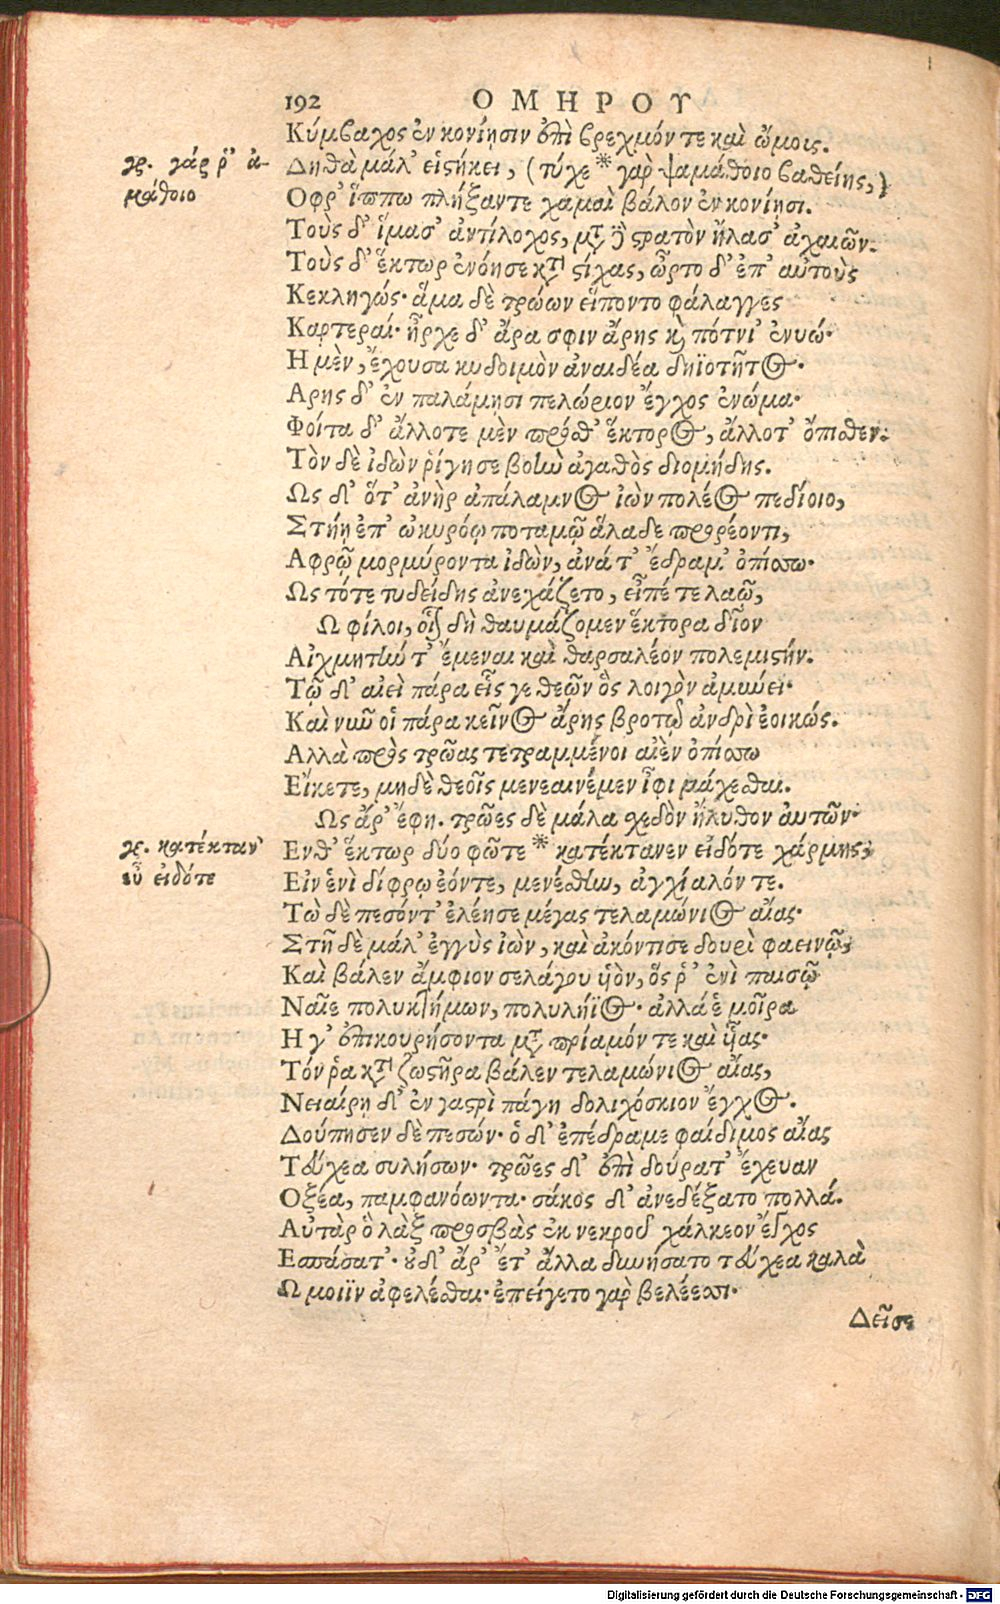 192 ΟΜΗΡΟΥ
Κύμβαχος ἐν κονίῃσιν ἐπὶ βρεχμόν τε καὶ ὤμοις.
γρ. γάρ ῥ' ἀ-
μάθοιο
Δηθὰ μάλ' εἱστήκει, (τύχε * γὰρ ψαμάθοιο βαθείης,)
Οφρ' ἵππω πλήξαντε χαμαὶ βάλον ἐν κονίῃσι.
Τοὺς δ' ἵμασ' ἀντίλοχος, μετὰ δὲ στρατὸν ἤλασ' ἀχαιῶν.
Τοὺς δ' ἕκτωρ ἐνόησε κατὰ στίχας, ὦρτο δ' ἐπ' αὐτοὺς
Κεκληγώς· ἅμα δὲ τρώων εἵποντο φάλαγγες
Καρτεραί· ἦρχε δ' ἄρα σφιν ἄρης καὶ πότνι' ἐνυώ·
Η μὲν, ἔχουσα κυδοιμὸν ἀναιδέα δηϊοτῆτος·
Αρης δ' ἐν παλάμῃσι πελώριον ἔγχος ἐνώμα·
Φοίτα δ' ἄλλοτε μὲν πρόσθ' ἕκτορος, ἄλλοτ' ὄπισθεν.
Τὸν δὲ ἰδὼν ῥίγησε βοὴν ἀγαθὸς διομήδης.
Ως δ' ὅτ' ἀνὴρ ἀπάλαμνος ἰὼν πολέος πεδίοιο,
Στήῃ ἐπ' ὠκυρόῳ ποταμῷ ἅλαδε προρέοντι,
Αφρῷ μορμύροντα ἰδὼν, ἀνά τ' ἔδραμ' ὀπίσσω·
Ως τότε τυδείδης ἀνεχάζετο, εἶπέ τε λαῷ,
Ω φίλοι, οἷον δὴ θαυμάζομεν ἕκτορα δῖον
Αἰχμητήν τ' ἔμεναι καὶ θαρσαλέον πολεμιστήν.
Τῷ δ' αἰεὶ πάρα εἷς γε θεῶν ὃς λοιγὸν ἀμύνει·
Καὶ νῦν οἱ πάρα κεῖνος ἄρης βροτῷ ἀνδρὶ ἐοικώς.
Αλλὰ πρὸς τρῶας τετραμμένοι αἰὲν ὀπίσσω
Εἴκετε, μηδὲ θεοῖς μενεαινέμεν ἶφι μάχεσθαι.
Ως ἄρ' ἔφη. τρῶες δὲ μάλα σχεδὸν ἤλυθον αὐτῶν·
γρ. κατέκταν'
εὖ εἰδότε
Ενθ' ἕκτωρ δύο φῶτε * κατέκτανεν εἰδότε χάρμης,
Εἰν ἑνὶ δίφρῳ ἐόντε, μενέσθην, ἀγχίαλόν τε.
Τὼ δὲ πεσόντ' ἐλέησε μέγας τελαμώνιος αἴας·
Στῆ δὲ μάλ' ἐγγὺς ἰὼν, καὶ ἀκόντισε δουρὶ φαεινῷ,
Καὶ βάλεν ἄμφιον σελάγου υἱὸν, ὅς ῥ' ἐνὶ παισῷ
Ναῖε πολυκτήμων, πολυλήϊος· ἀλλά ἑ μοῖρα
Η γ' ἐπικουρήσοντα μετὰ πρίαμόν τε καὶ υἷας·
Τόν ῥα κατὰ ζωστῆρα βάλεν τελαμώνιος αἴας,
Νειαίρῃ δ' ἐν γαστρὶ πάγη δολιχόσκιον ἔγχος.
Δούπησεν δὲ πεσών· ὁ δ' ἐπέδραμε φαίδιμος αἴας
Τεύχεα συλήσων· τρῶες δ' ἐπὶ δούρατ' ἔχευαν
Οξέα, παμφανόωντα· σάκος δ' ἀνεδέξατο πολλά.
Αὐτὰρ ὃ λὰξ προσβὰς ἐκ νεκροῦ χάλκεον ἔγχος
Εσπάσατ'· οὐδ' ἄρ' ἔτ' ἄλλα δυνήσατο τεύχεα καλὰ
Ωμοιϊν ἀφελέσθαι· ἐπείγετο γὰρ βελέεσσι·
Δεῖσε
Digitalisierung gefördert durch die Deutsche Forschungsgemeinschaft - DFG